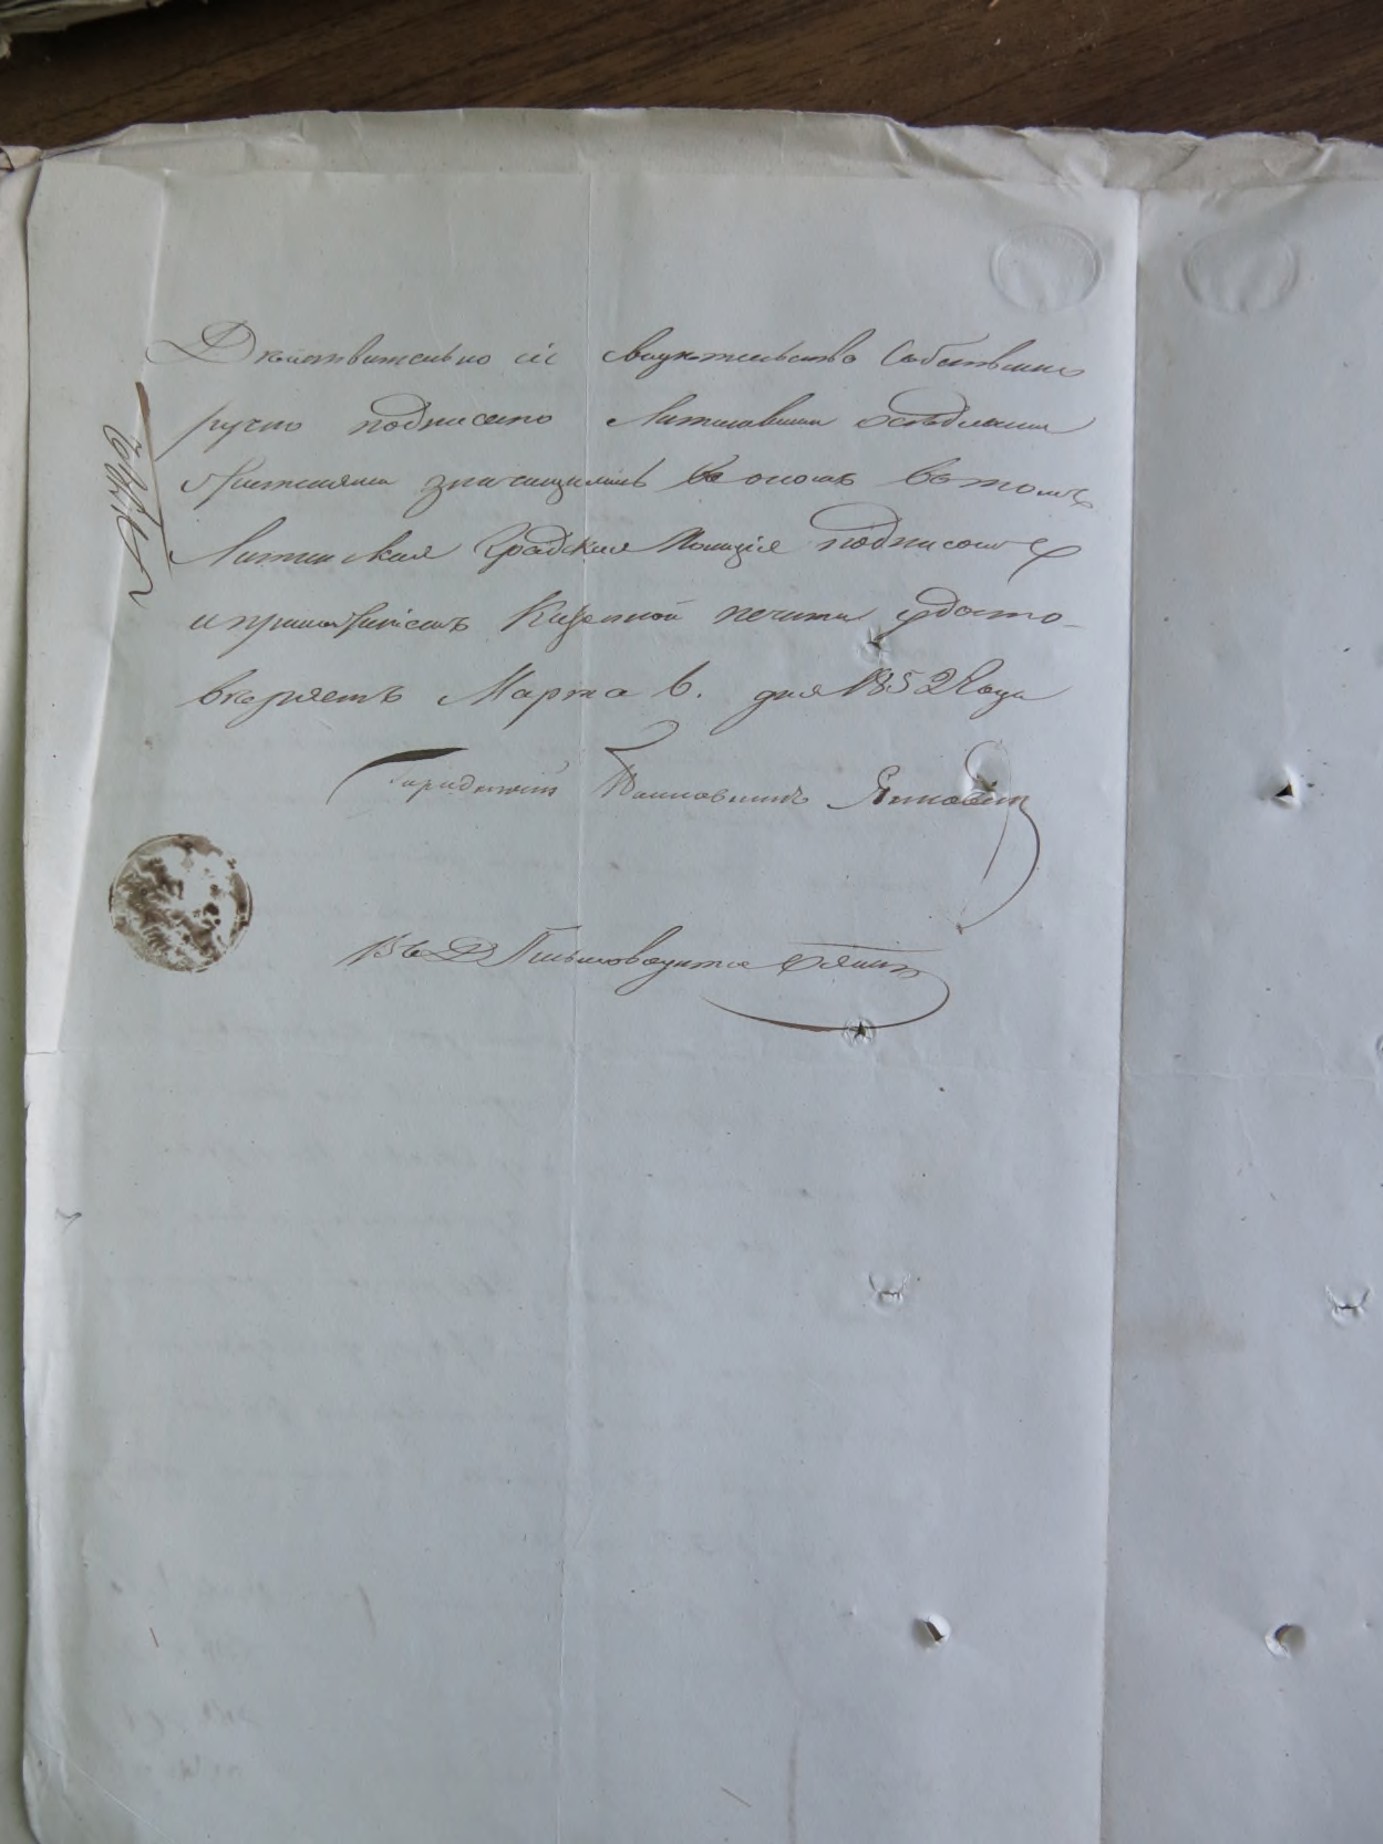 Дѣйствительно сіе свидѣтельство Собствен
ручно подписано Литинскими осѣдлыми
Жителями значущимись въ ономъ въ томъ
Литинская Градская Полиція подписомъ
и приложеніемъ Казенной печати удосто-
вѣряетъ Марта 6. дня 1852 Года
Городничій Яновскій
Письмоводитель